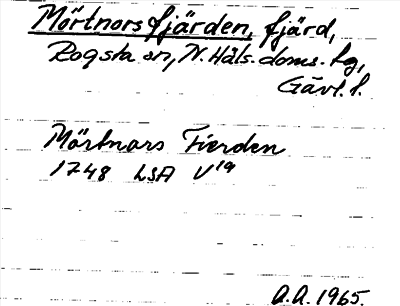 Mörtnorsfjärden, fjärd,
Rogsta sn, N. Häls. doms. tg,
Gävl. l.
Mörtnors Fierden
1748 LSA V19
A.A. 1965.